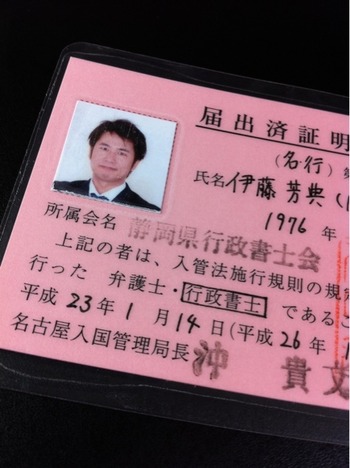 届出済証明
(名行)第
氏名 伊藤 芳典 (
1976 年
所属会名 静岡県行政書士会
上記の者は、入管法施行規則の規定
行った 弁護士・行政書士 であるこ
平成 23 年 1 月 14 日 (平成 26 年 1
名古屋入国管理局長 沖 貴文